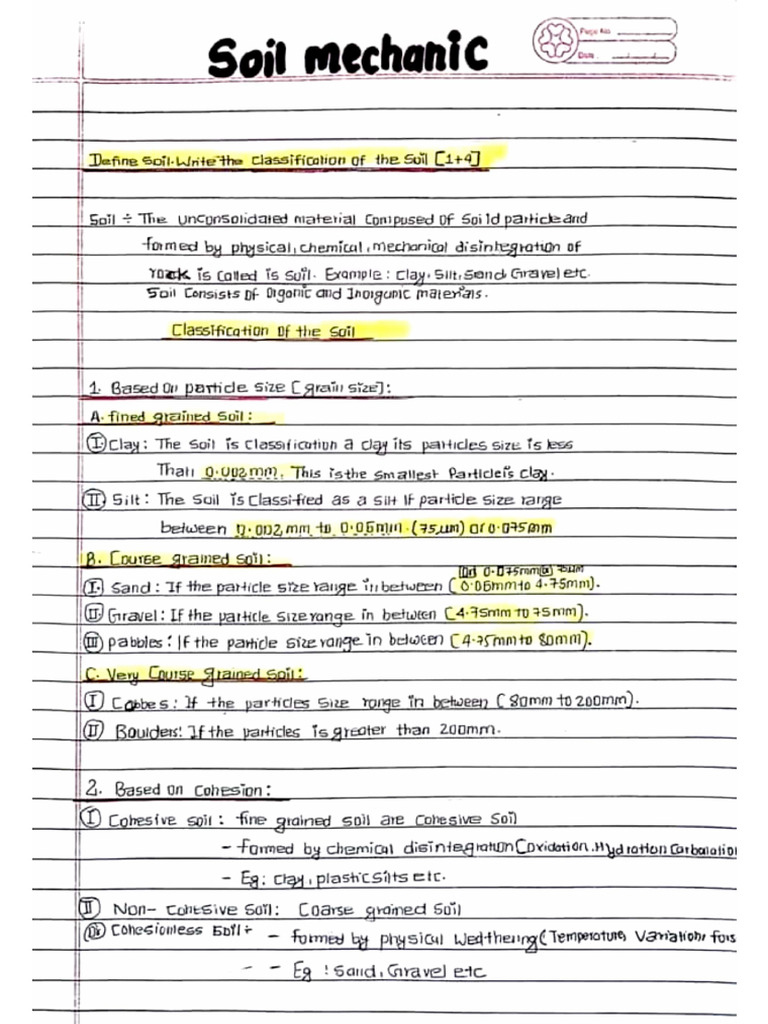 Soil mechanic
Page No.
Date
Define Soil. Write the Classification of the Soil [1+4]
Soil ÷ The unconsolidated material composed of Soild particle and
formed by physical, chemical, mechanical disintegration of
rock is called is soil. Example: Clay, Silt, Sand, Gravel etc.
Soil Consists of Organic and Inorganic materials.
Classification of the Soil
1. Based on particle size [grain size]:
A. fined grained Soil:
I. Clay: The Soil is Classification a clay its particles size is less
Than 0.002mm. This is the smallest Particle is clay.
II Silt: The Soil is Classified as a silt if particle size range
between 0.002 mm to 0.06mm. (75 µm) or 0.075mm
B. Course grained soil:
(or) 0.075mm (or) 75µm
I. Sand: If the particle size range in between (0.06mm to 4.75mm).
II Gravel: If the particle size range in between (4.75mm to 75mm).
III pabbles: If the particle size range in between (4.75mm to 80mm).
C. Very Course grained soil:
I Cobbes: If the particles size range in between (80mm to 200mm).
II Boulders: If the particles is greater than 200mm.
2. Based on Cohesion:
I Cohesive soil: fine grained soil are Cohesive Soil
- formed by chemical disintegration (oxidation. Hydration Carbonation
- Eg: clay, plastic silts etc.
II Non-Cohesive Soil: Coarse grained Soil
(Or) Cohesionless Soil ÷ - formed by physical Wedthering (Temperature, Variation, fois
- - Eg: Sand, Gravel etc